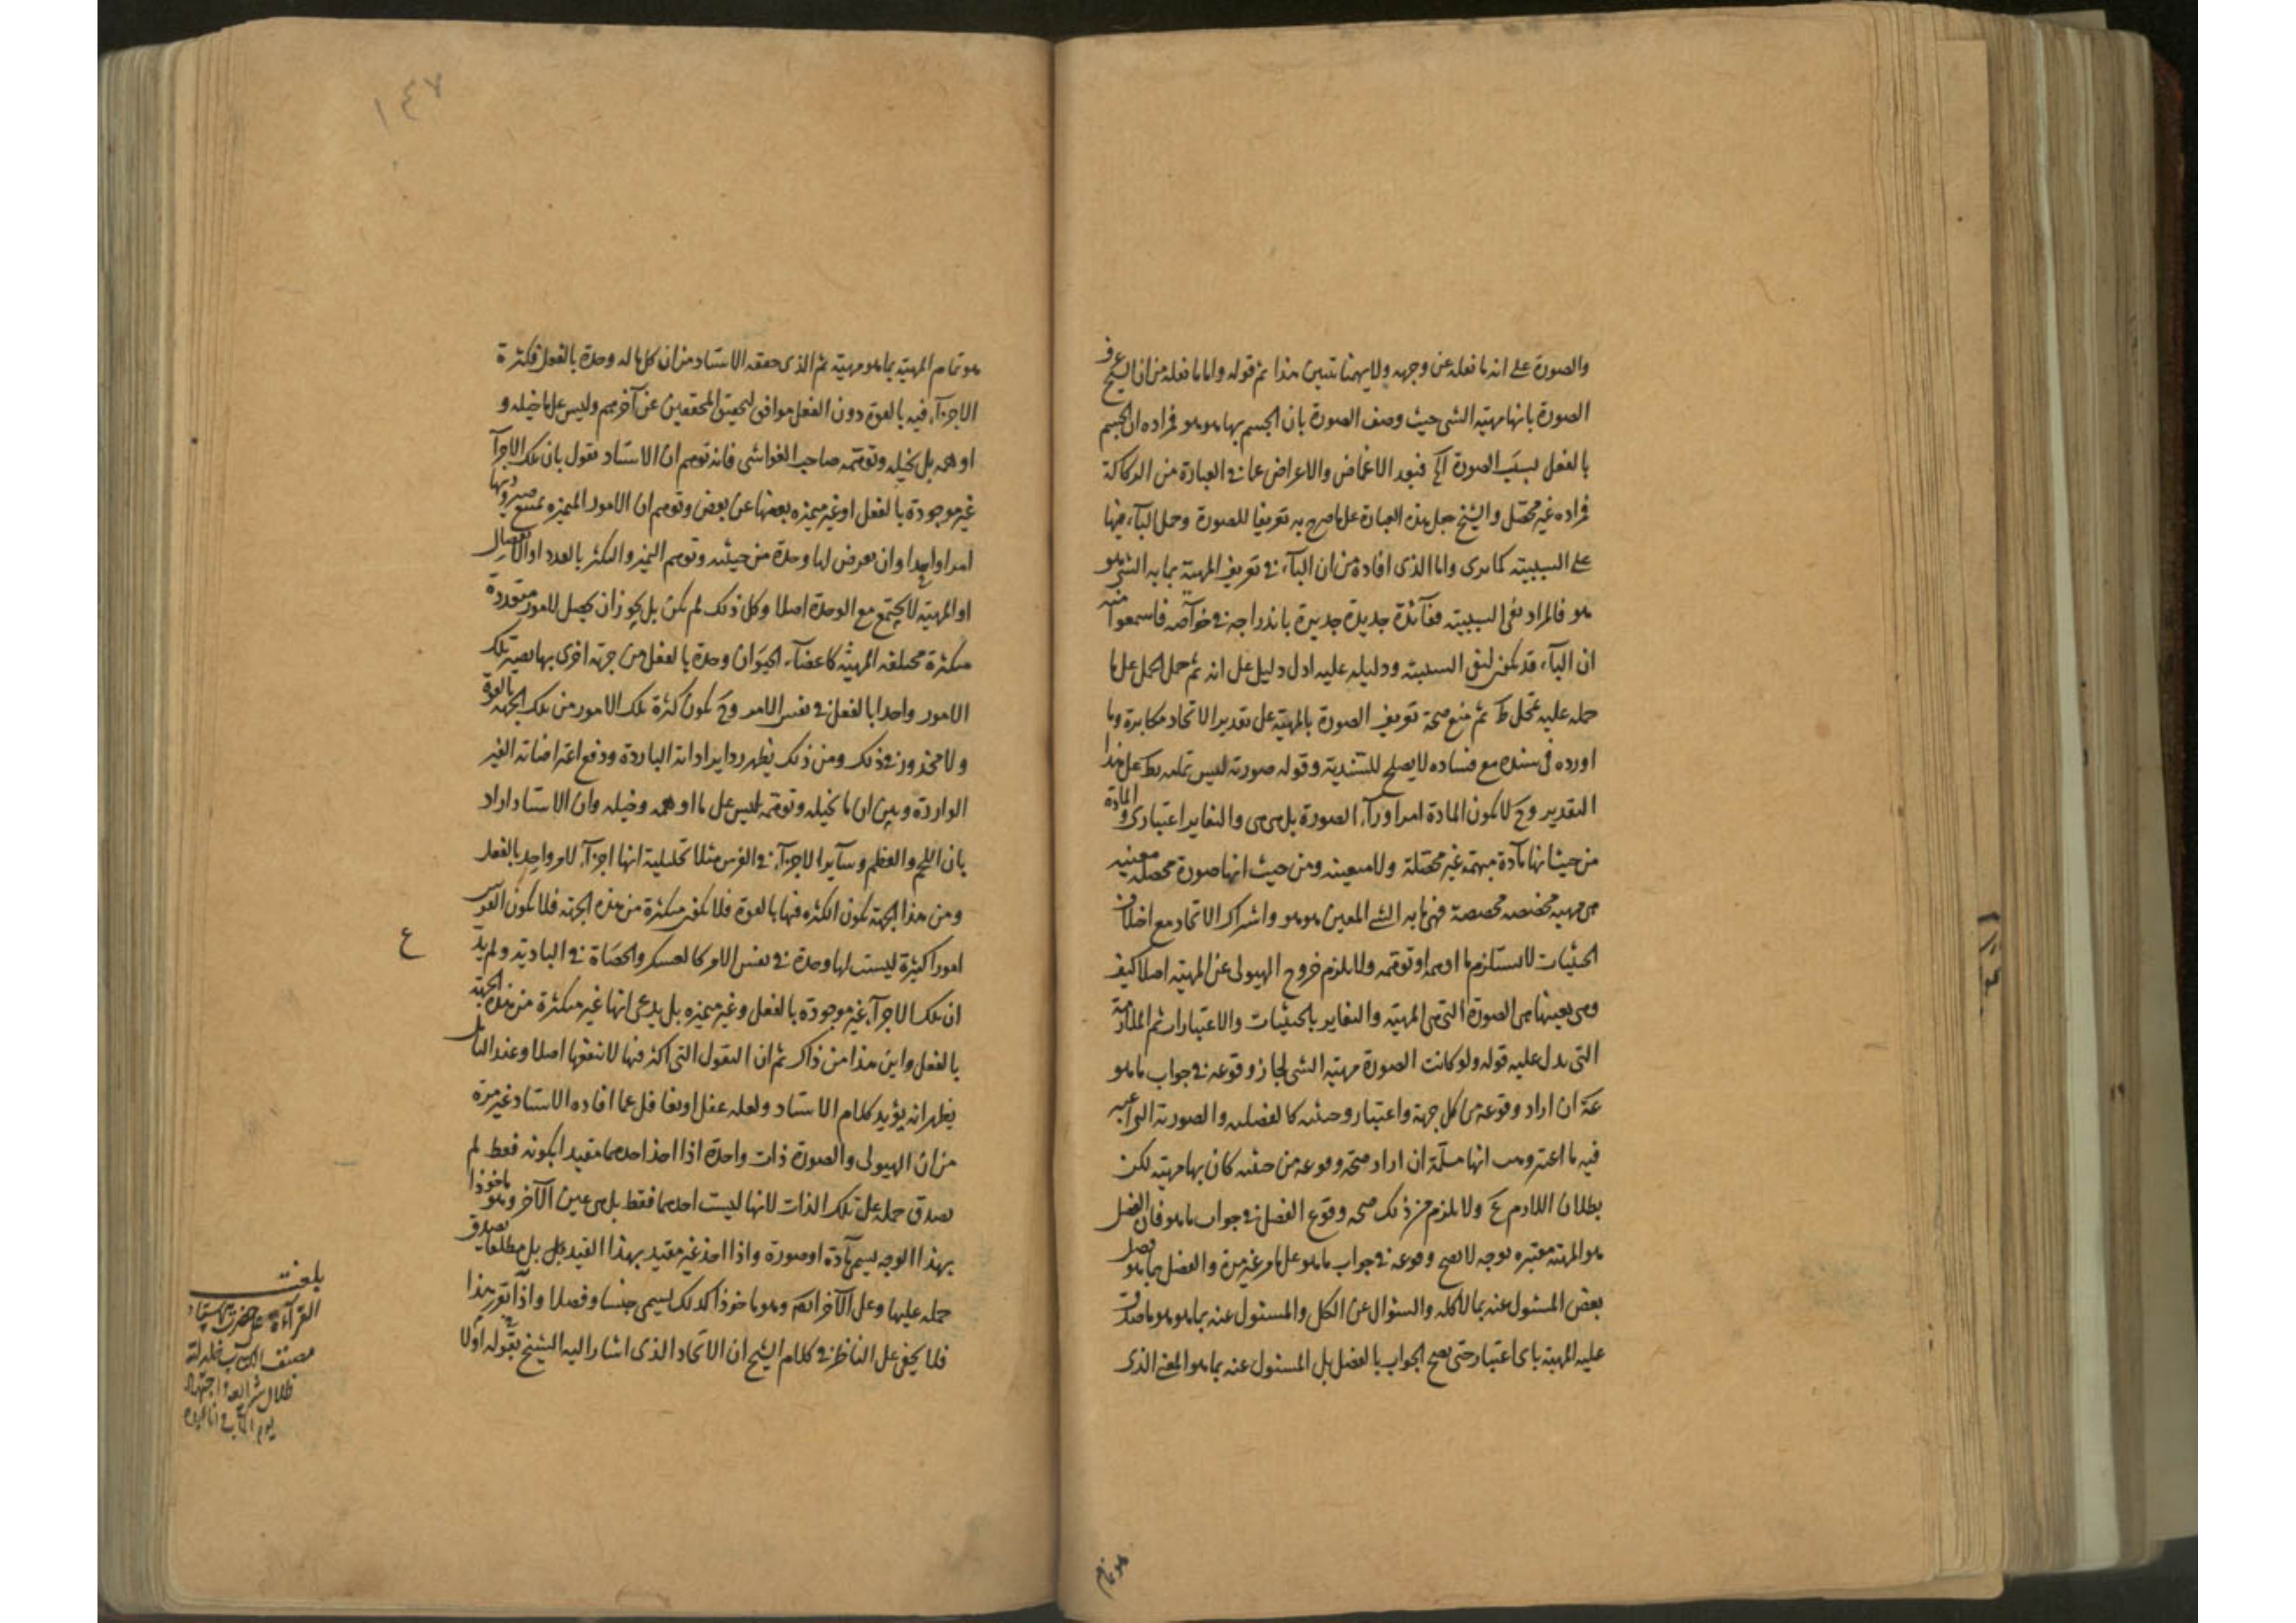 والصورة على انه ما نقله عن وجهه ولايهمنا تبيين هذا ثم قوله واما ما نقله من ان الشيخ عرف
الصورة بانها مهية الشى حيث وصف الصورة بان الجسم بها هو هو فراده ان الجسم
بالفعل بسبب الصورة الخ فبعد الاغماض والاعراض عما فى العبادة من الركاكة
فراده غير محصّل والشيخ جعل هذه العبارة على ما صرح به تعريفا للصورة وحمل البآء فيها
على السببية كما ترى واما الذى افاده من ان البآء فى تعريف المهية بما به الشى هو
هو فالمراد نفى السببية ففائدة جديدة جديرة باندراجه فى خواصه فاسمعوا منه
ان البآء قد يكون لنفى السببية ودليله عليه ادل دليل على انه ثم حمل الحمل على ما
حمله عليه تمحل ظ ثم منع صحة تعريف الصورة بالمهية على تقدير الاتحاد مكابرة وما
اورده فى سنده مع فساده لا يصلح للسندية وقوله صورته ليس بط على هذا
التقدير وح لا يكون المادة امرا ورآء الصورة بل هى هى والتغاير اعتبارى والمادة
من حيث انها مادة مبهمة غير محصّلة ولا معينه ومن حيث انها صورة محصلة معينه
هى مهية مخصصه فهى ما به الشى المعين هو هو واشتراك الاتحاد مع اختلاف
الحيثيات لا يستلزم ما اوهمه او توهمه ولا يلزم خروج الهيولى عن المهية اصلا كيف
وهى بعينها هى الصورة التى هى المهية والتغاير بالحيثيات والاعتبارات ثم الملازمة
التى يدل عليه قوله ولو كانت الصورة مهية الشى لجاز وقوعه فى جواب ما هو
ان اراد وقوعه من كل جهة واعتبار وحيثيه
فيه ما اعتبر انها مسلّمة ان اراد صحة وقوعه من حيثيه كان بها مهية لكن
بطلان اللازم مم ولا يلزم من ذلك صحة وقوع الفصل فى جواب ما هو فان الفصل
هو المهية معتبره بوجه لا يصح وقوعه فى جواب ما هو على ما مر غير مرة والفصل
بعض المسئول عنه بما لا كله والسئوال عن الكل والمسئول عنه بما هو هو ما صدق
عليه المهية باى اعتبار حتى يصح الجواب بالفصل بل المسئول عنه بما هو المعنى الذى
هو تمام
١٤٧
هو تمام المهية بما هو مهية ثم الذى حققه الاستاد من ان كل ما له وحدة بالفعل فكثرة
الاجزآء فيه بالقوة دون الفعل موافق لتحقيق المحققين عن آخرهم وليس على ما خيله و
اوهمه بل تخيله وتوهمه صاحب الغواشى فانه توهم ان الاستاد يقول بان تلك الاجزآ
غير موجودة بالفعل او غير متميزه بعضها عن بعض وتوهم ان الامور المتميزه يمتنع صيرورتها
امرا واحدا وان يعرض لها وحدة من حيثيه وتوهم التميز والتكثر بالعدد او الانفصال
او المهية لا يجتمع مع الوحدة اصلا وكل ذلك لم يكن بل يجوز ان يحصل لامور متعددة
متكثرة مختلفه المهية كاعضآء الحيوان وحدة بالفعل من جهة اخرى بها يصير تلك
الامور واحدا بالفعل فى نفس الامر وح يكون كثرة تلك الامور من تلك الجهة بالقوة
ولا محذور فى ذلك ومن ذلك يظهر رد ايراداته الباردة ودفع اعتراضاته الغير
الواردة وبين ان ما تخيله وتوهمه ليس على ما اوهمه وخيله وان الاستاد اراد
بان اللحم والعظم وساير الاجزآء فى الفرس مثلا تحليلية انها اجزآء لامر واحد بالفعل
ومن هذا الجهة يكون الكثره فيها بالقوة فلا يكون متكثرة من هذه الجهة فلا يكون الفرس
امورا كثيرة ليست لها وحدة فى نفس الامر كالعسكر والحصاة فى البادية ولم يدّع
ان تلك الاجزآء غير موجودة بالفعل وغير متميزه بل يدعى انها غير متكثرة من هذه الجهة
بالفعل واين هذا من ذاك ثم ان النقول التى اكثر فيها لا تنفعها اصلا وعند التامل
يظهر انه يؤيد كلام الاستاد ولعله غفل او تغافل عما افاده الاستاد غير مرة
من ان الهيولى والصورة ذات واحدة اذا اخذ احدهما مقيدا بكونه فقط لم
يصدق حمله على تلك الذات لانها ليست احدهما فقط بل هى عين الآخر وهو ماخوذا
بهذا الوجه يسمى مادة او صورة واذا اخذ غير مقيد بهذا القيد بل مطلقا يصدق
حمله عليها وعلى الآخر ايضا وهو ماخوذا كذلك يسمى جنسا وفصلا واذا تقرر هذا
فلا يخفى على الناظر فى كلام الشيخ ان الاتحاد الذى اشار اليه الشيخ بقوله اولا
ع
بلغت
القراءة على حضرت الاستاد
مصنف الكتاب خلد الله
ظلال